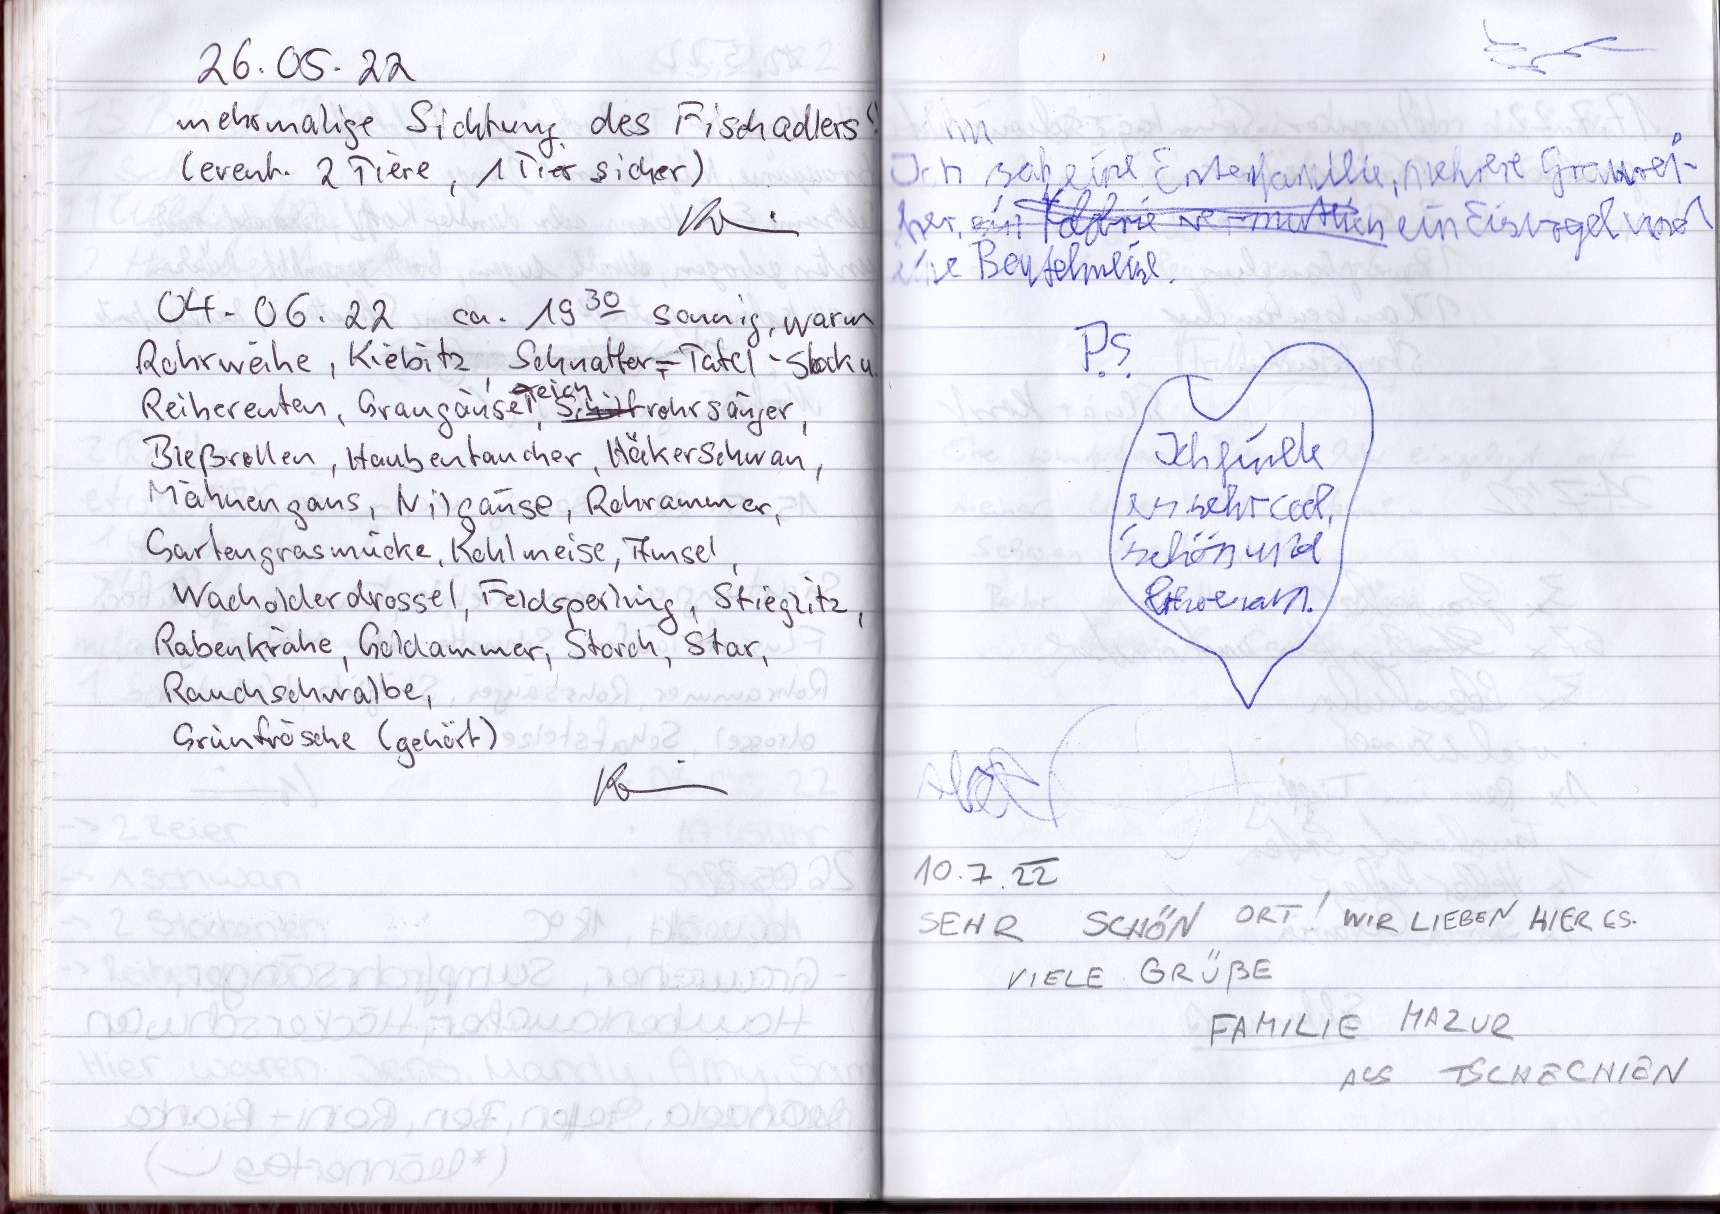 26.05.22
mehrmalige Sichtung des Fischadlers!
(event. 2 Tiere, 1 Tier sicher)
04.06.22 ca. 19 30 sonnig, warm
Rohrweihe, Kiebitz, Schnatter=Tafel-Stock u.
Reiherenten, Graugänse, Teichrohrsänger,
Bleßrallen, Haubentaucher, Höckerschwan,
Mähnengans, Nilgänse, Rohrammer,
Gartengrasmücke, Kohlmeise, Amsel,
Wacholderdrossel, Feldsperling, Stieglitz,
Rabenkrähe, Goldammer, Storch, Star,
Rauchschwalbe,
Grünfrösche (gehört)
Ich sah eine Entenfamilie, mehrere Graurei-
her, ein Eisvogel und
eine Beutelmeise.
P.S.
Ich
sehr cool,
schön und
10.7.22
SEHR SCHÖN ORT! WIR LIEBEN HIER ES.
VIELE GRÜßE
FAMILIE MAZUR
AUS TSCHECHIEN